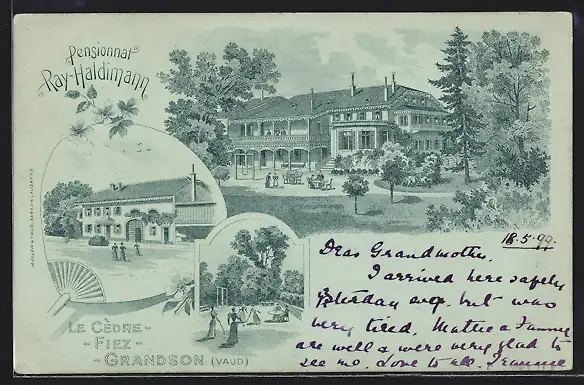 Pensionnat
Ray-Haldimann
Le Cèdre -
- Fiez -
- Grandson (Vaud)
18.5.99.
Dear Grandmother,
I arrived here safely
yesterday evg. but was
very tired.
are well & were very glad to
see me. Love to all.